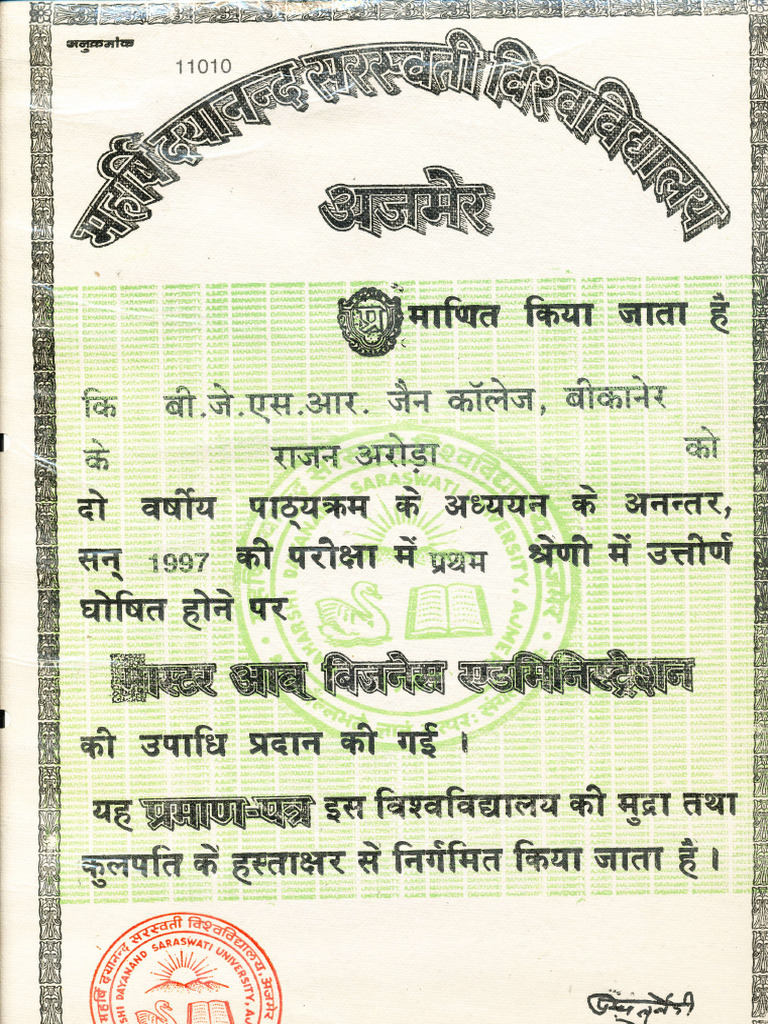 अनुक्रमांक
11010
महर्षि दयानन्द सरस्वती विश्वविद्यालय
अजमेर
प्रमाणित किया जाता है
कि बी.जे.एस.आर. जैन कॉलेज, बीकानेर
के राजन अरोड़ा को
दो वर्षीय पाठ्यक्रम के अध्ययन के अनन्तर,
सन् 1997 की परीक्षा में प्रथम श्रेणी में उत्तीर्ण
घोषित होने पर
मास्टर आव् बिजनेस एडमिनिस्ट्रेशन
की उपाधि प्रदान की गई ।
यह प्रमाण-पत्र इस विश्वविद्यालय की मुद्रा तथा
कुलपति के हस्ताक्षर से निर्गमित किया जाता है ।
महर्षि दयानन्द सरस्वती विश्वविद्यालय, अजमेर
DAYANAND SARASWATI UNIVERSITY,